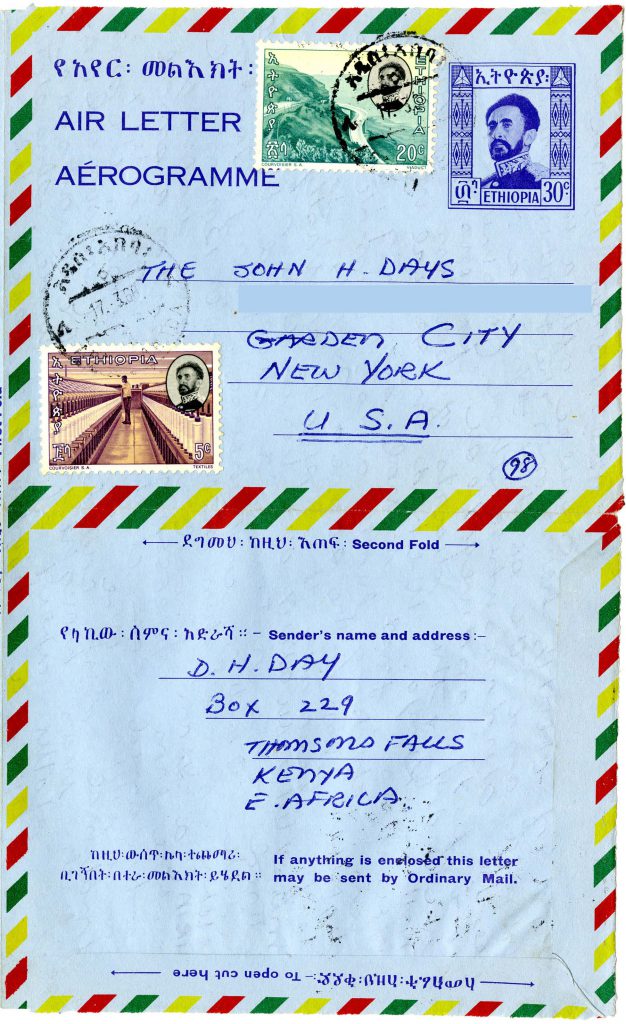 የአየር፡ መልእክት፡
AIR LETTER
AÉROGRAMME
ኢትዮጵያ
ETHIOPIA
፳ሳ
20¢
COURVOISIER S.A
VIADUCT
ኢትዮጵያ፡
፴ሳ
ETHIOPIA
30¢
አዲስ፡አበባ
17.3.
THE JOHN H. DAYS
GARDEN CITY
NEW YORK
U.S.A.
98
ETHIOPIA
ኢትዮጵያ
፭ሳ
5¢
COURVOISIER S.A
TEXTILES
ደግመህ፡ ከዚህ፡ እጠፍ፡ Second Fold
የላኪው፡ ስምና፡ አድራሻ። – Sender's name and address:–
D. H. DAY
BOX 229
THOMSONS FALLS
KENYA
E. AFRICA
ከዚህ፡ውስጥ፡ሌላ፡ተጨማሪ፡
ቢገኝበት፡በተራ፡መልእክት፡ይሄዳል።
If anything is enclosed this letter
may be sent by Ordinary Mail.
To open cut here